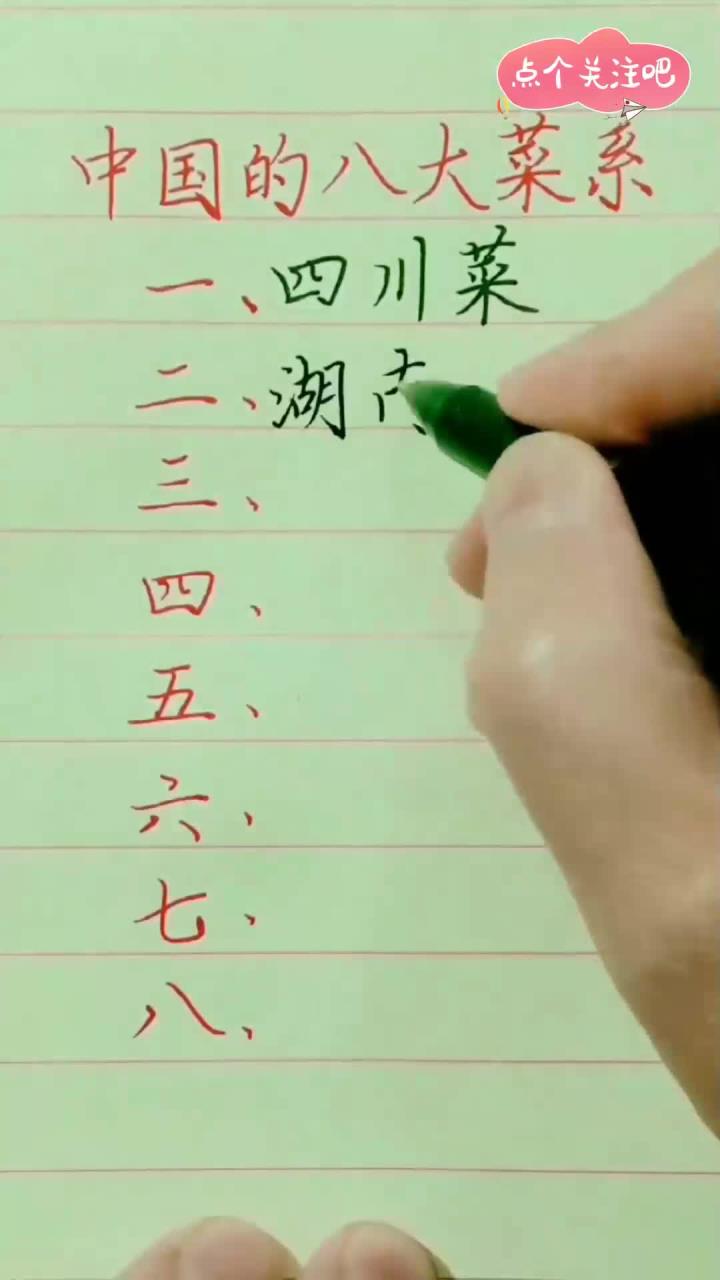 点个关注吧
中国的八大菜系
一、四川菜
二、湖
三、
四、
五、
六、
七、
八、